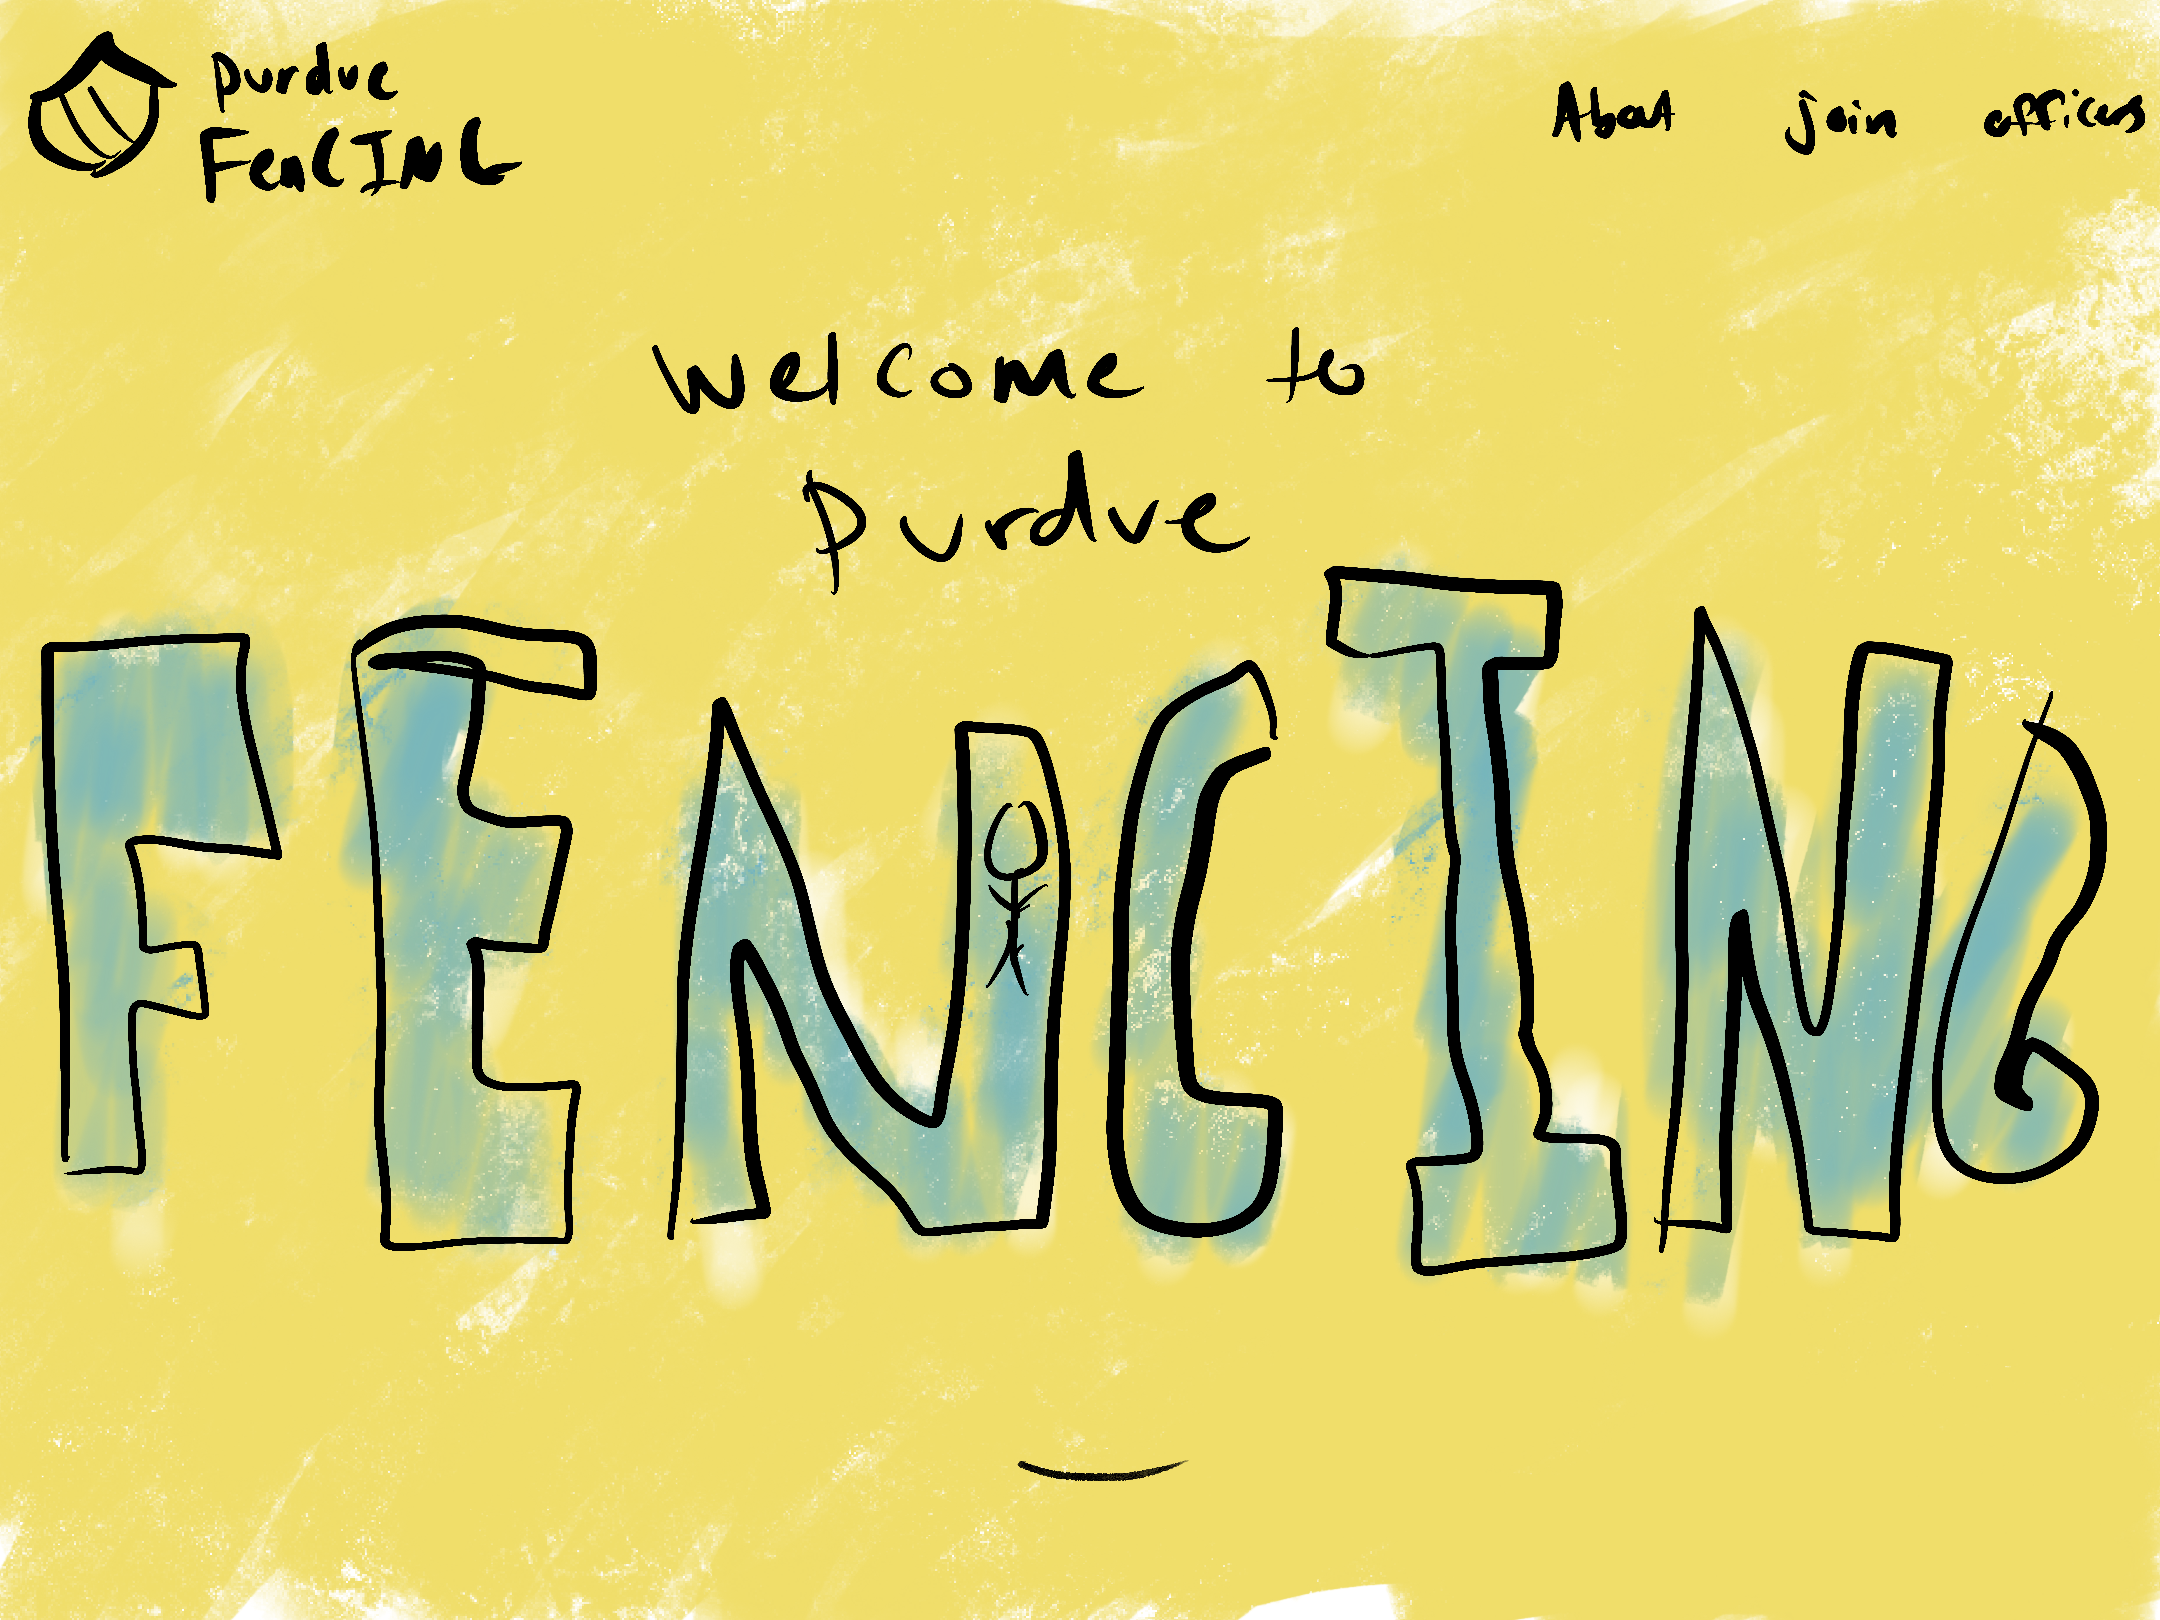 purdue
FencING
About join officers
welcome to
purdue
FENCING